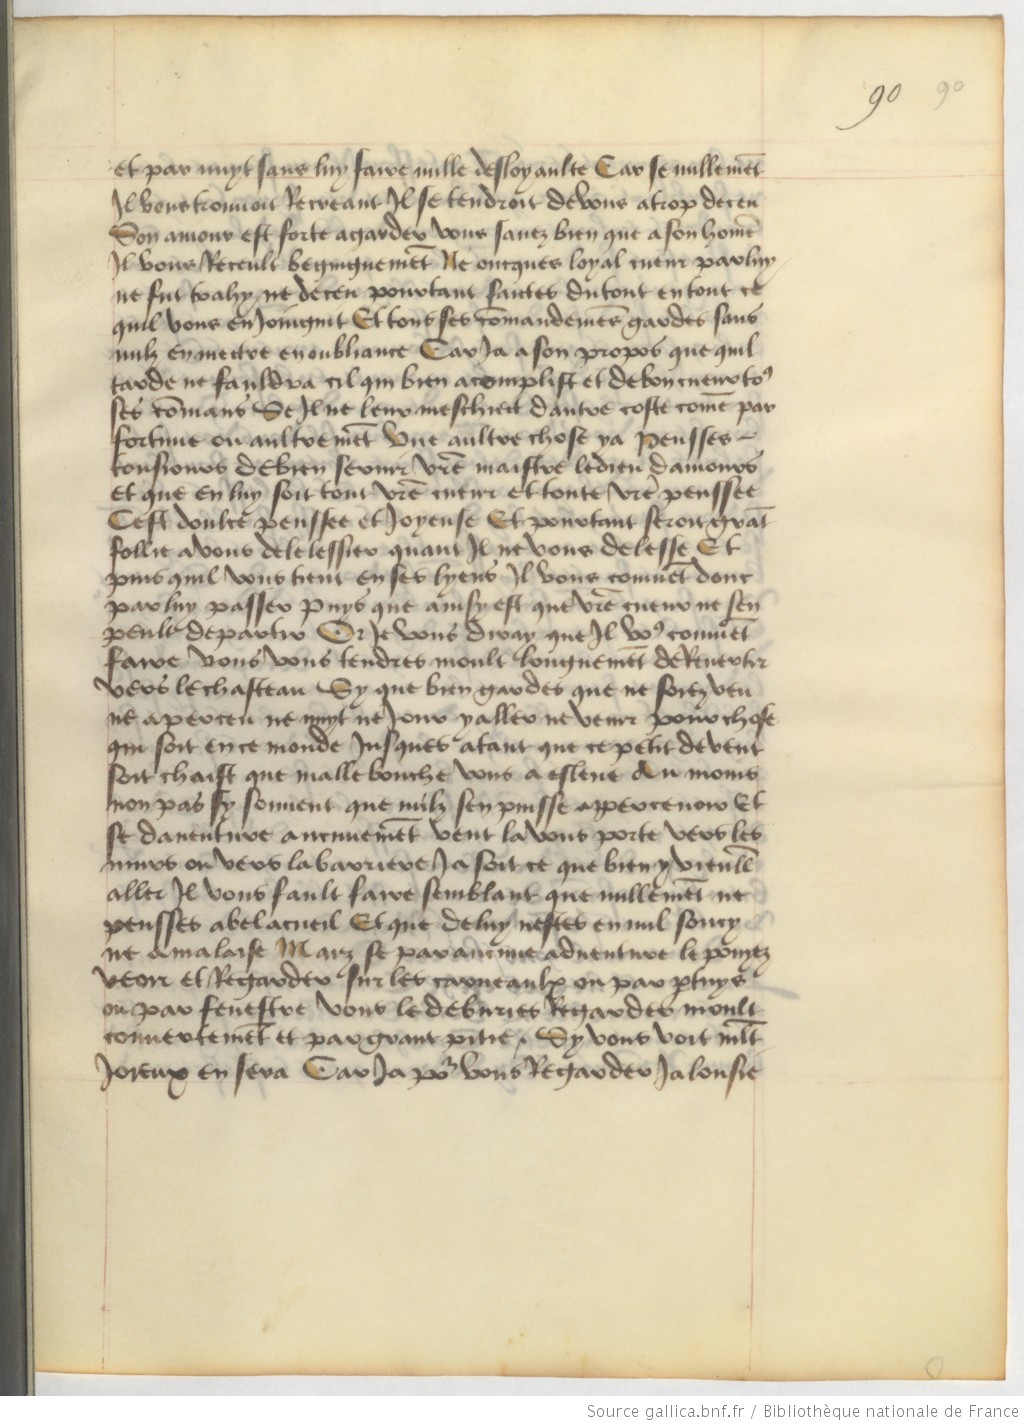 90 90
et par nuyt sans luy faire nulle desloyaulte Car se nullemẽt
Il vous trouuoit Recreant Il se tendroit de vous a trop deceu
Son amour est forte a garder vous sauez bien que a son home
Il vous Receult begnignemẽt Ne oncques loyal cueur par luy
ne fut trahy ne deceu pourtant faites du tout en tout ce
quil vous enJoingnit Et tous ses cõmandemẽs gardes sans
nulz en mectre en oubliance Car Ja a son propos que quil
tarde ne fauldra cil qui bien acomplist et de bon cueur to9
ses cõmans Se Il ne leur meschiet dautre coste come par
fortune ou aultremẽt Une aultre chose ya Pensses
tousiours de bien seruir vrẽ maistre le dieu damours
et que en luy soit tout vrẽ cueur et toute vrẽ penssee
Cest doulce penssee et Joyeuse Et pourtant seroit grãt
follie a vous de le lessier quant Il ne vous delesse Et
puis quil vous tient en ses lyens Il vous conuiẽt donc
par luy passer Puys que ainsy est que vrẽ cueur ne sen
peult departir Or Je vous diray que Il vo9 conuiẽt
faire Vous vous tendres moult longuemẽt de Reuertir
vers le chasteau Sy que bien gardes que ne soiez veu
ne aperceu ne nuyt ne Jour y aller ne venir pour chose
qui soit en ce monde Jusques atant que ce petit de vent
soit chaist que malle bouche vous a esleue Au moins
non pas sy souuent que nulz sen puisse aperceuoir Et
se dauenture aucunemẽt vent la vous porte vers les
murs ou vers la barriere Ja soit ce que bien y vieull
aller Il vous fault faire semblant que nullemẽt ne
pensses a bel acueil Et que de luy nestes en nul soucy
ne a malaise Mais se par aucune aduenture le pouyez
veoir et Regarder sur les carneaulx ou par ptuys
ou par fenestre vous le deburies Regarder moult
couuertemẽt et par grant pitie. Sy vous voit mlt
Joieux en sera Car Ja por vous Regarder Jalousie
Source gallica.bnf.fr / Bibliothèque nationale de France